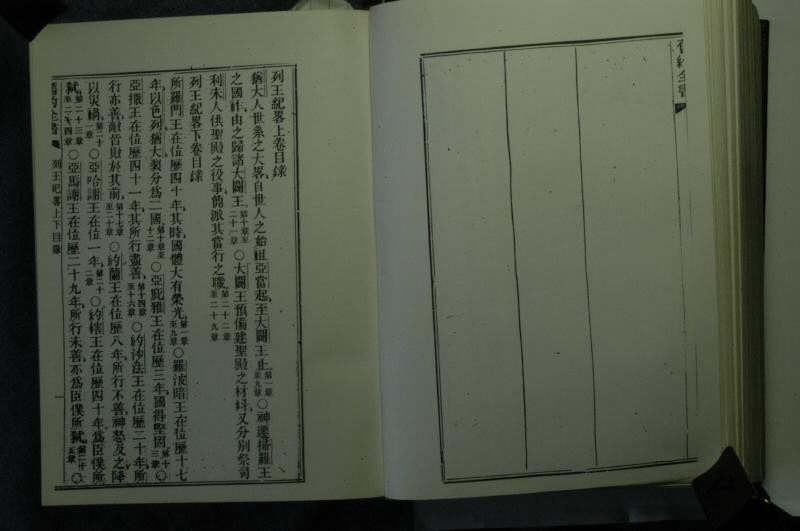 舊約全書
列王紀畧上卷目錄
猶大人世系之大畧自世人之始祖亞當起至大闢王止第一章至九章○神遷掃羅王
之國祚由之歸諸大闢王第十章至二十一章○大闢王預備建聖殿之材料又分別祭司
利未人供聖殿之役事簡派其當行之職第二十二章至二十九章
列王紀畧下卷目錄
所羅門王在位歷四十年其時國體大有榮光第一章至九章○羅波暗王在位歷十七
年以色列猶大裂分爲二國第十章至十二章○亞庇雅王在位歷三年國得堅固第十三章○
亞撒王在位歷四十一年其所行盡善第十四章至十六章○約沙法王在位歷二十年所
行亦善敵皆敗於其前第十七章至二十章○約蘭王在位歷八年所行不善神怒及之降
以災禍第二十一章○亞哈謝王在位一年第二十二章○約轄王在位歷四十年爲臣僕所
弒第二十三章至二十四章○亞馬謝王在位歷二十九年所行未善亦爲臣僕所弒第二十五章○
舊約全書 列王紀畧上下目錄